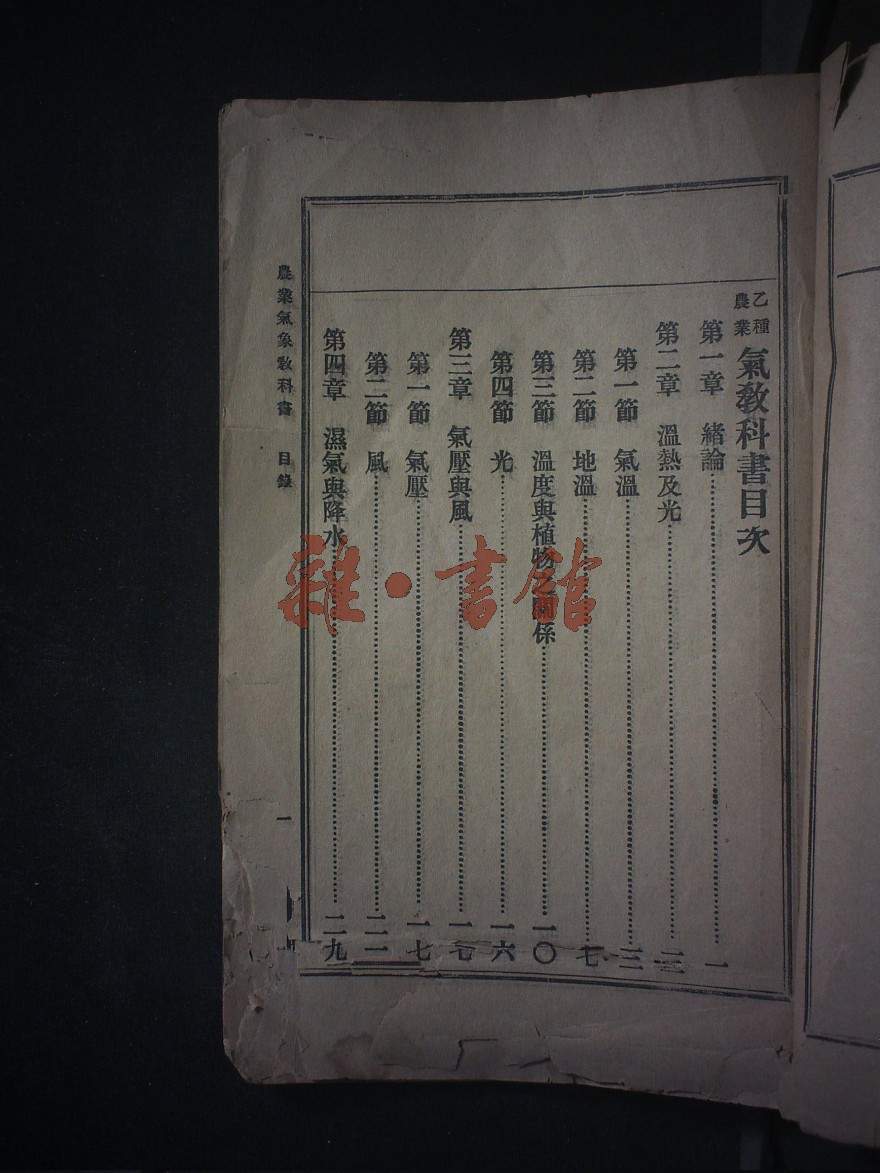 乙種
農業
氣敎科書目次
第一章 緖論……一
第二章 溫熱及光……三
第一節 氣溫……三
第二節 地溫……七
第三節 溫度與植物之關係……一〇
第四節 光……一六
第三章 氣壓與風……一七
第一節 氣壓……一七
第二節 風……二一
第四章 濕氣與降水……二九
農業氣象敎科書 目錄 一
雜·書館